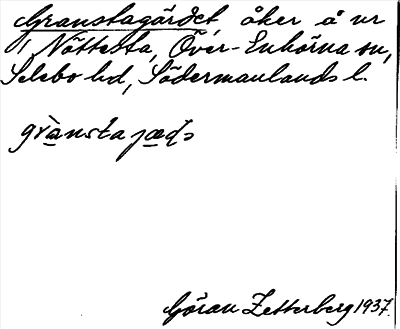 Granstagärdet, åker å nr
1 Nöttesta, Över-Enhörna sn,
Selebo hd, Södermanlands l.
grànsta jæɖə
Göran Zetterberg 1937.